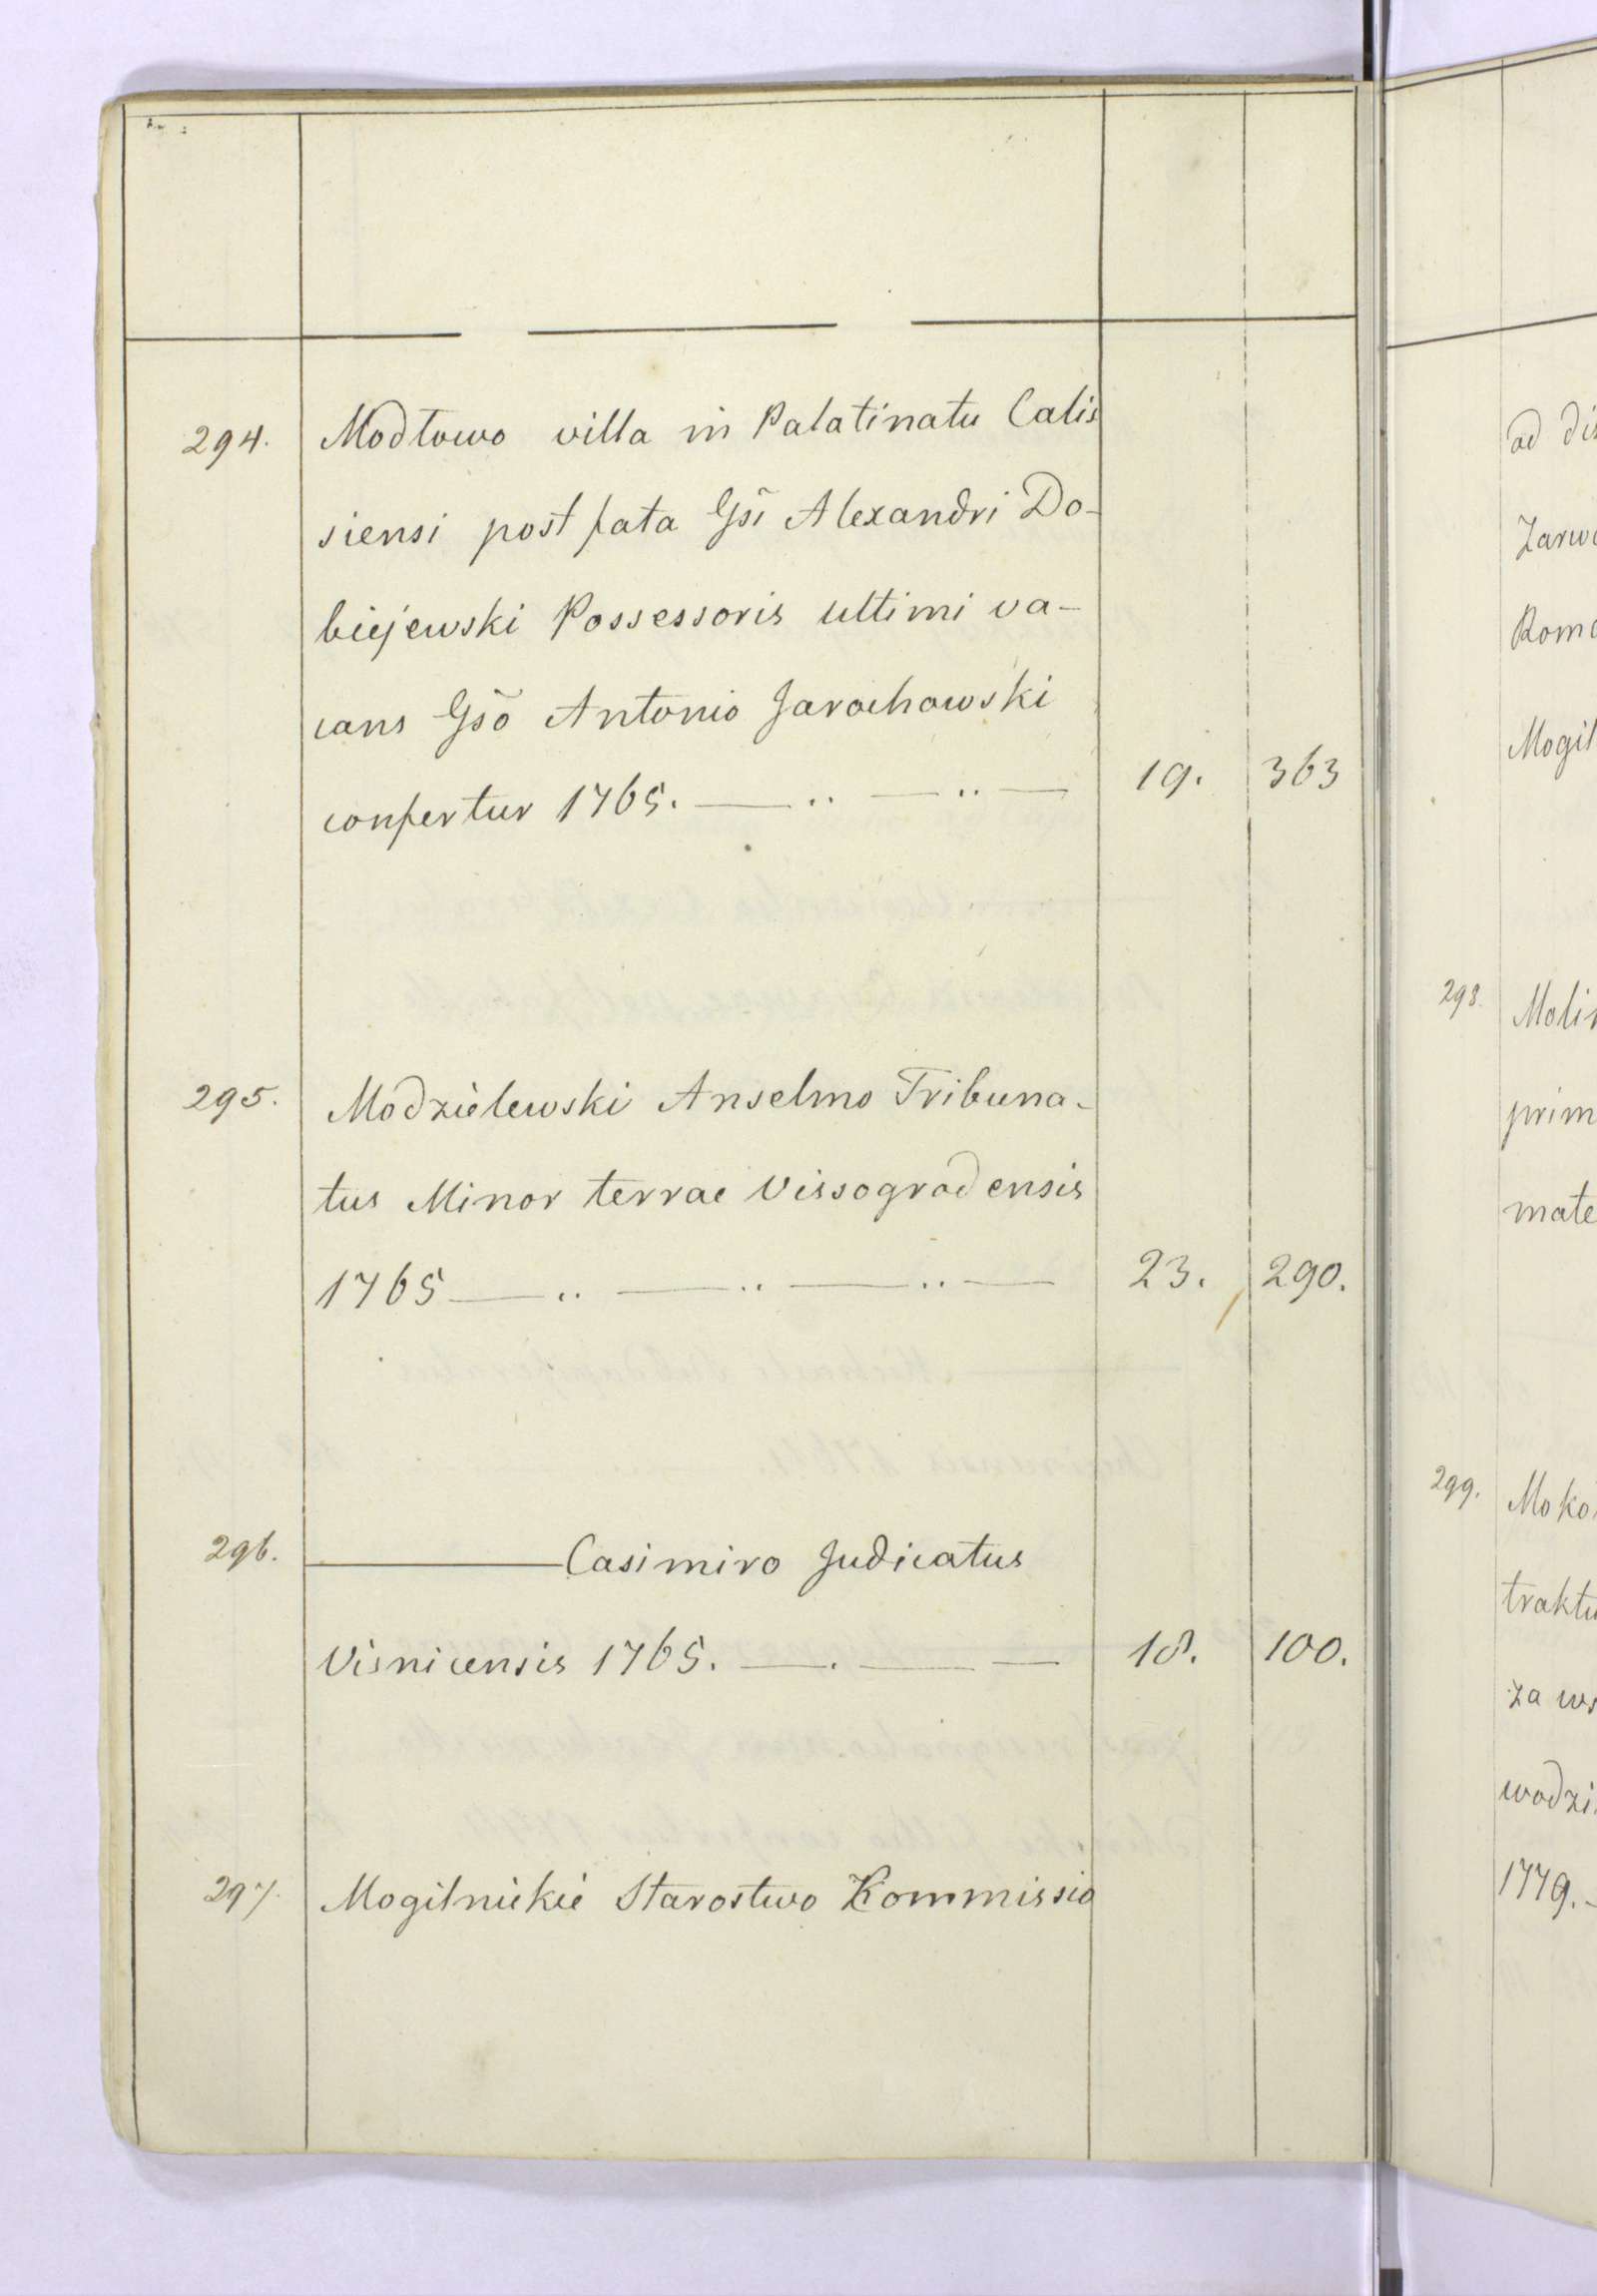 294. Modłowo villa in Palatinatu Calis
siensi post fata Gsi Alexandri Do-
biejewski Possessoris ultimi va-
cans Gsõ Antonio Jarochowski
confertur 1765. — .. — .. — 19. 363
295. Modzielewski Anselmo Tribuna-
tus Minor terrae Vissogradensis
1765 — .. — .. — .. — 23. 290.
296. ——— Casimiro Judicatus
Visnicensis 1765. — . — — 18. 100.
297. Mogilnickie Starostwo Kommissio
ad
Zarw
Rom
Mogil
298. Moli
prim
mate
299. Moko
traktu
za ws
wodzi
1779.-